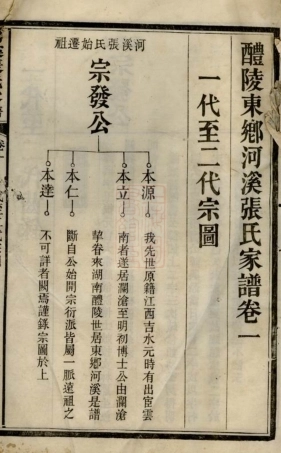 醴陵東鄉河溪張氏家譜卷一
一代至二代宗圖
河溪張氏始遷祖
宗發公
本源
本立
本仁
本達
我先世原籍江西吉水元時有出宦雲
南者遂居瀾滄至明初博士公由瀾滄
挈眷來湖南醴陵世居東鄉河溪是譜
斷自公始開宗衍派皆屬一脈遠祖之
不可詳者闕焉謹錄宗圖於上